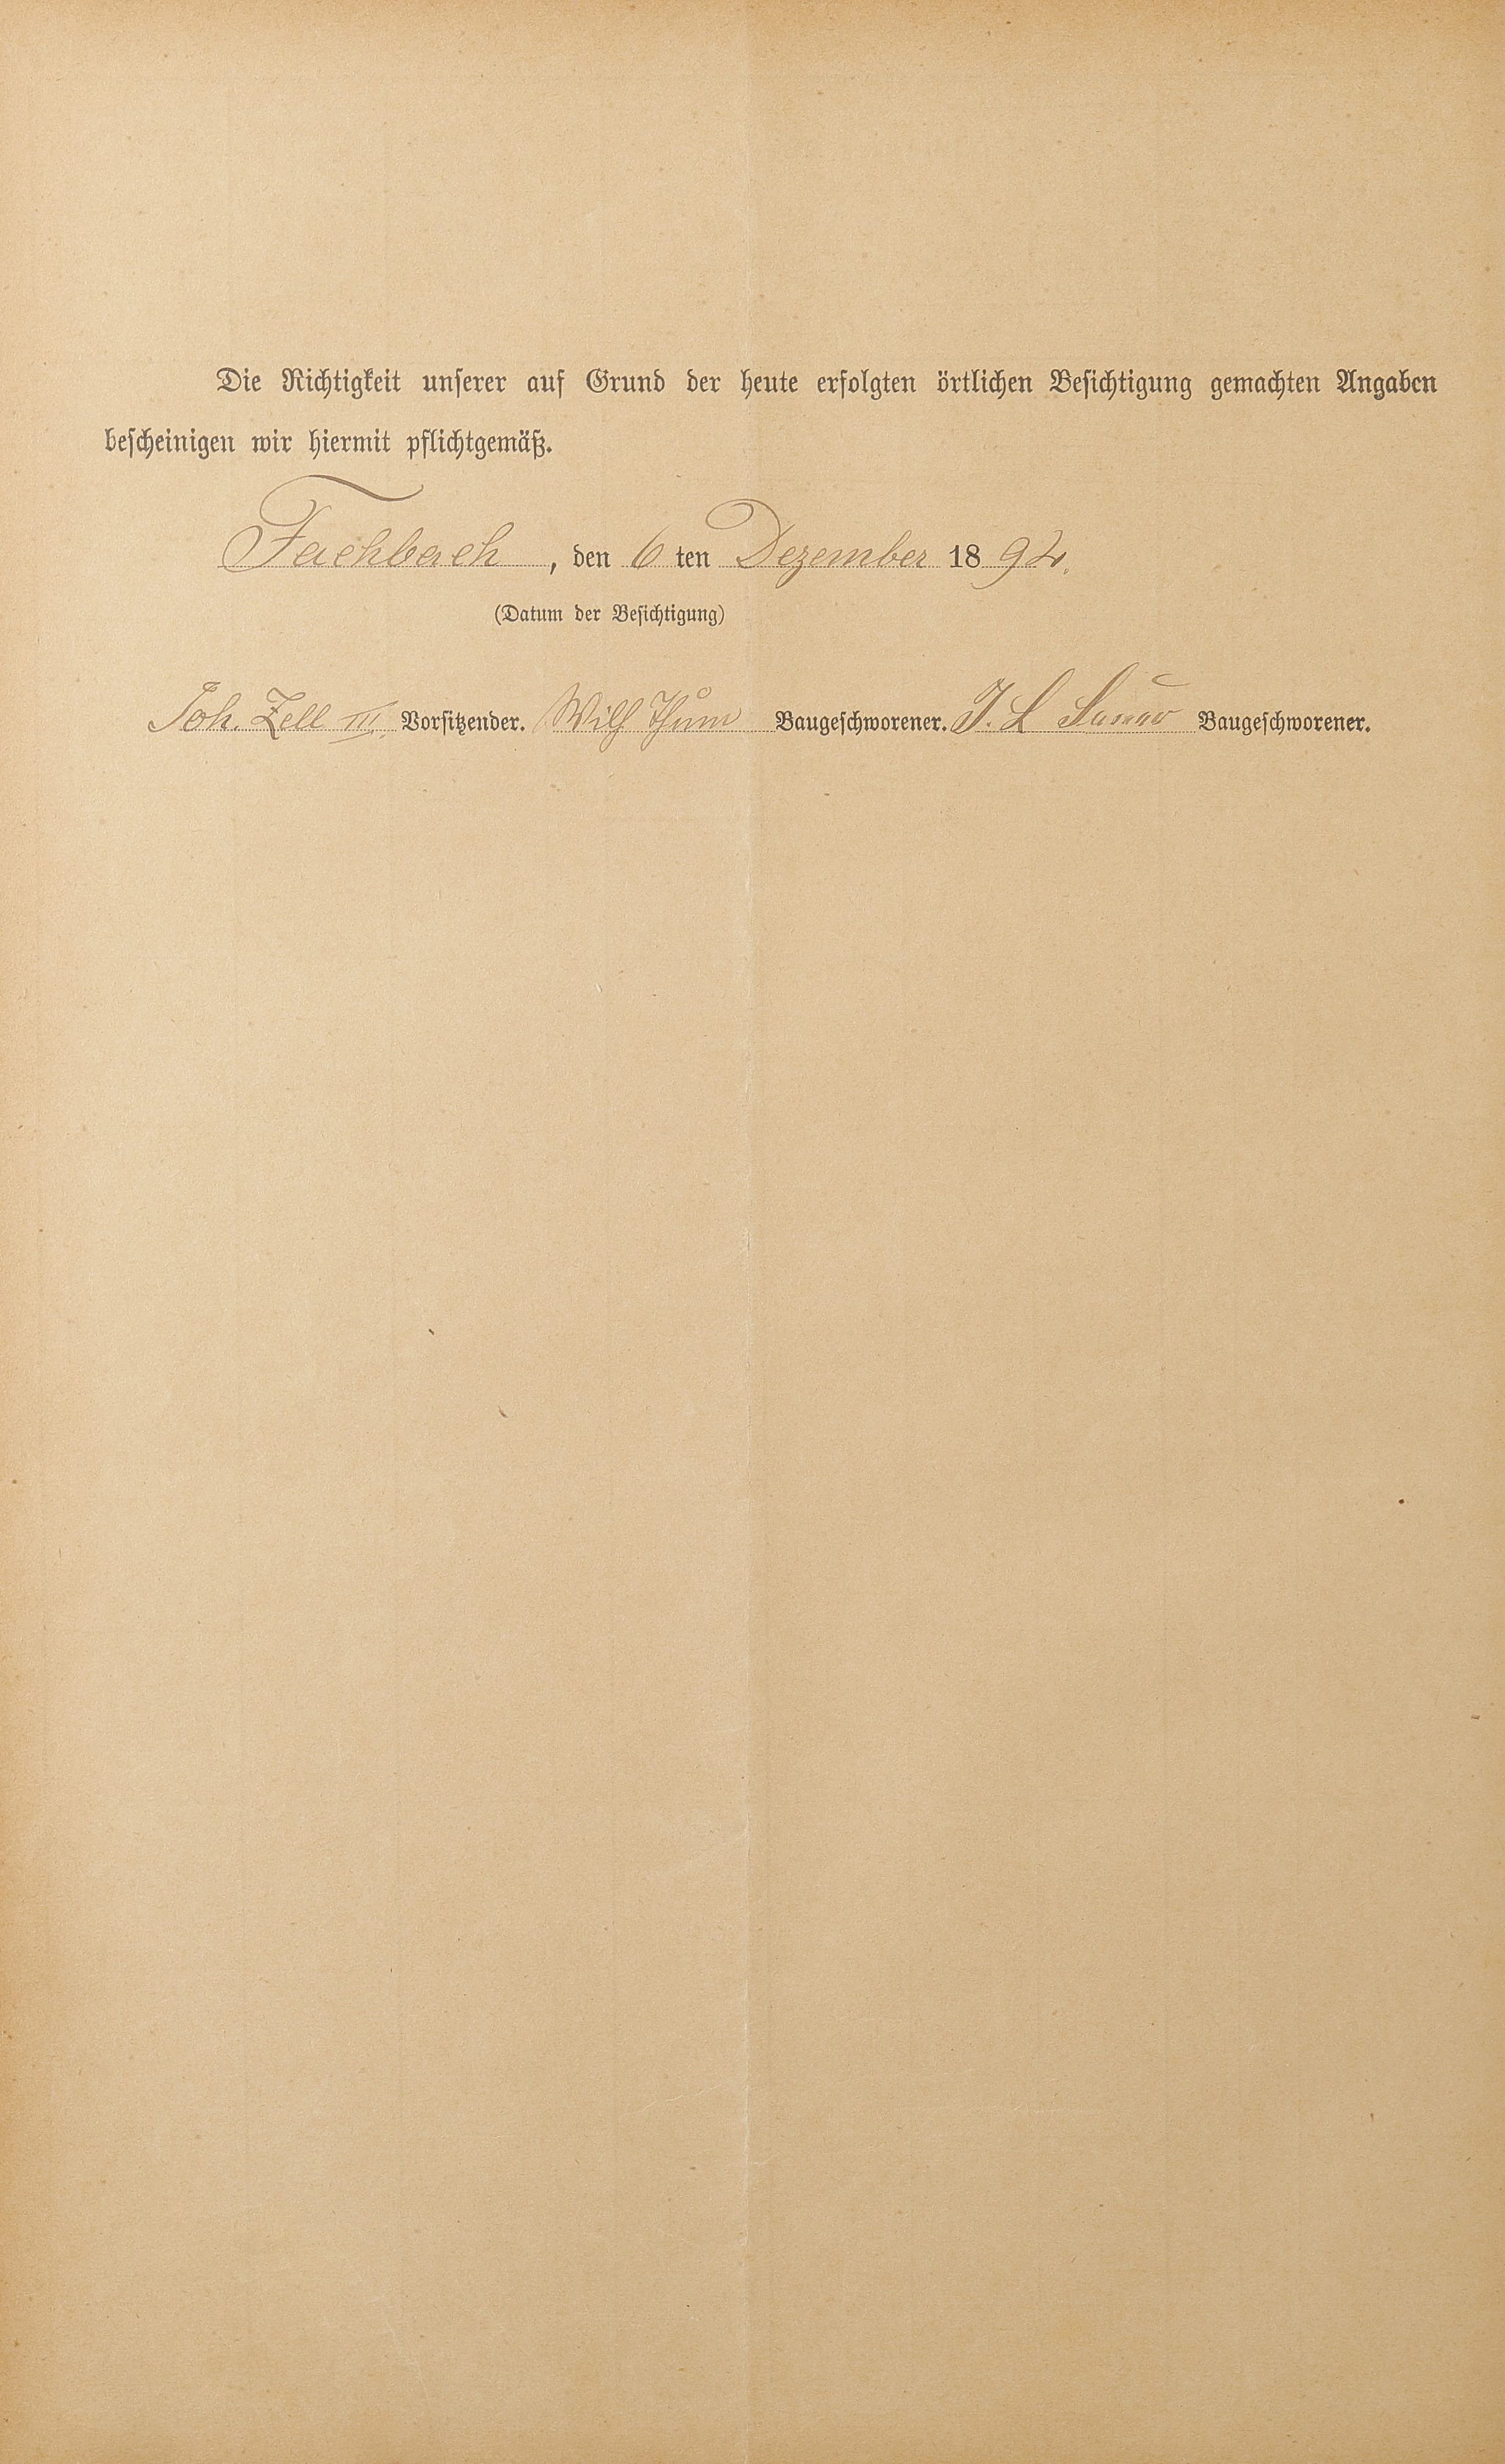 Die Richtigkeit unserer auf Grund der heute erfolgten örtlichen Besichtigung gemachten Angaben
bescheinigen wir hiermit pflichtgemäß.
Fachbach, den 6 ten Dezember 1892.
(Datum der Besichtigung)
Joh. Zell III. Vorsitzender. Wilh Baugeschworener. J. L Baugeschworener.